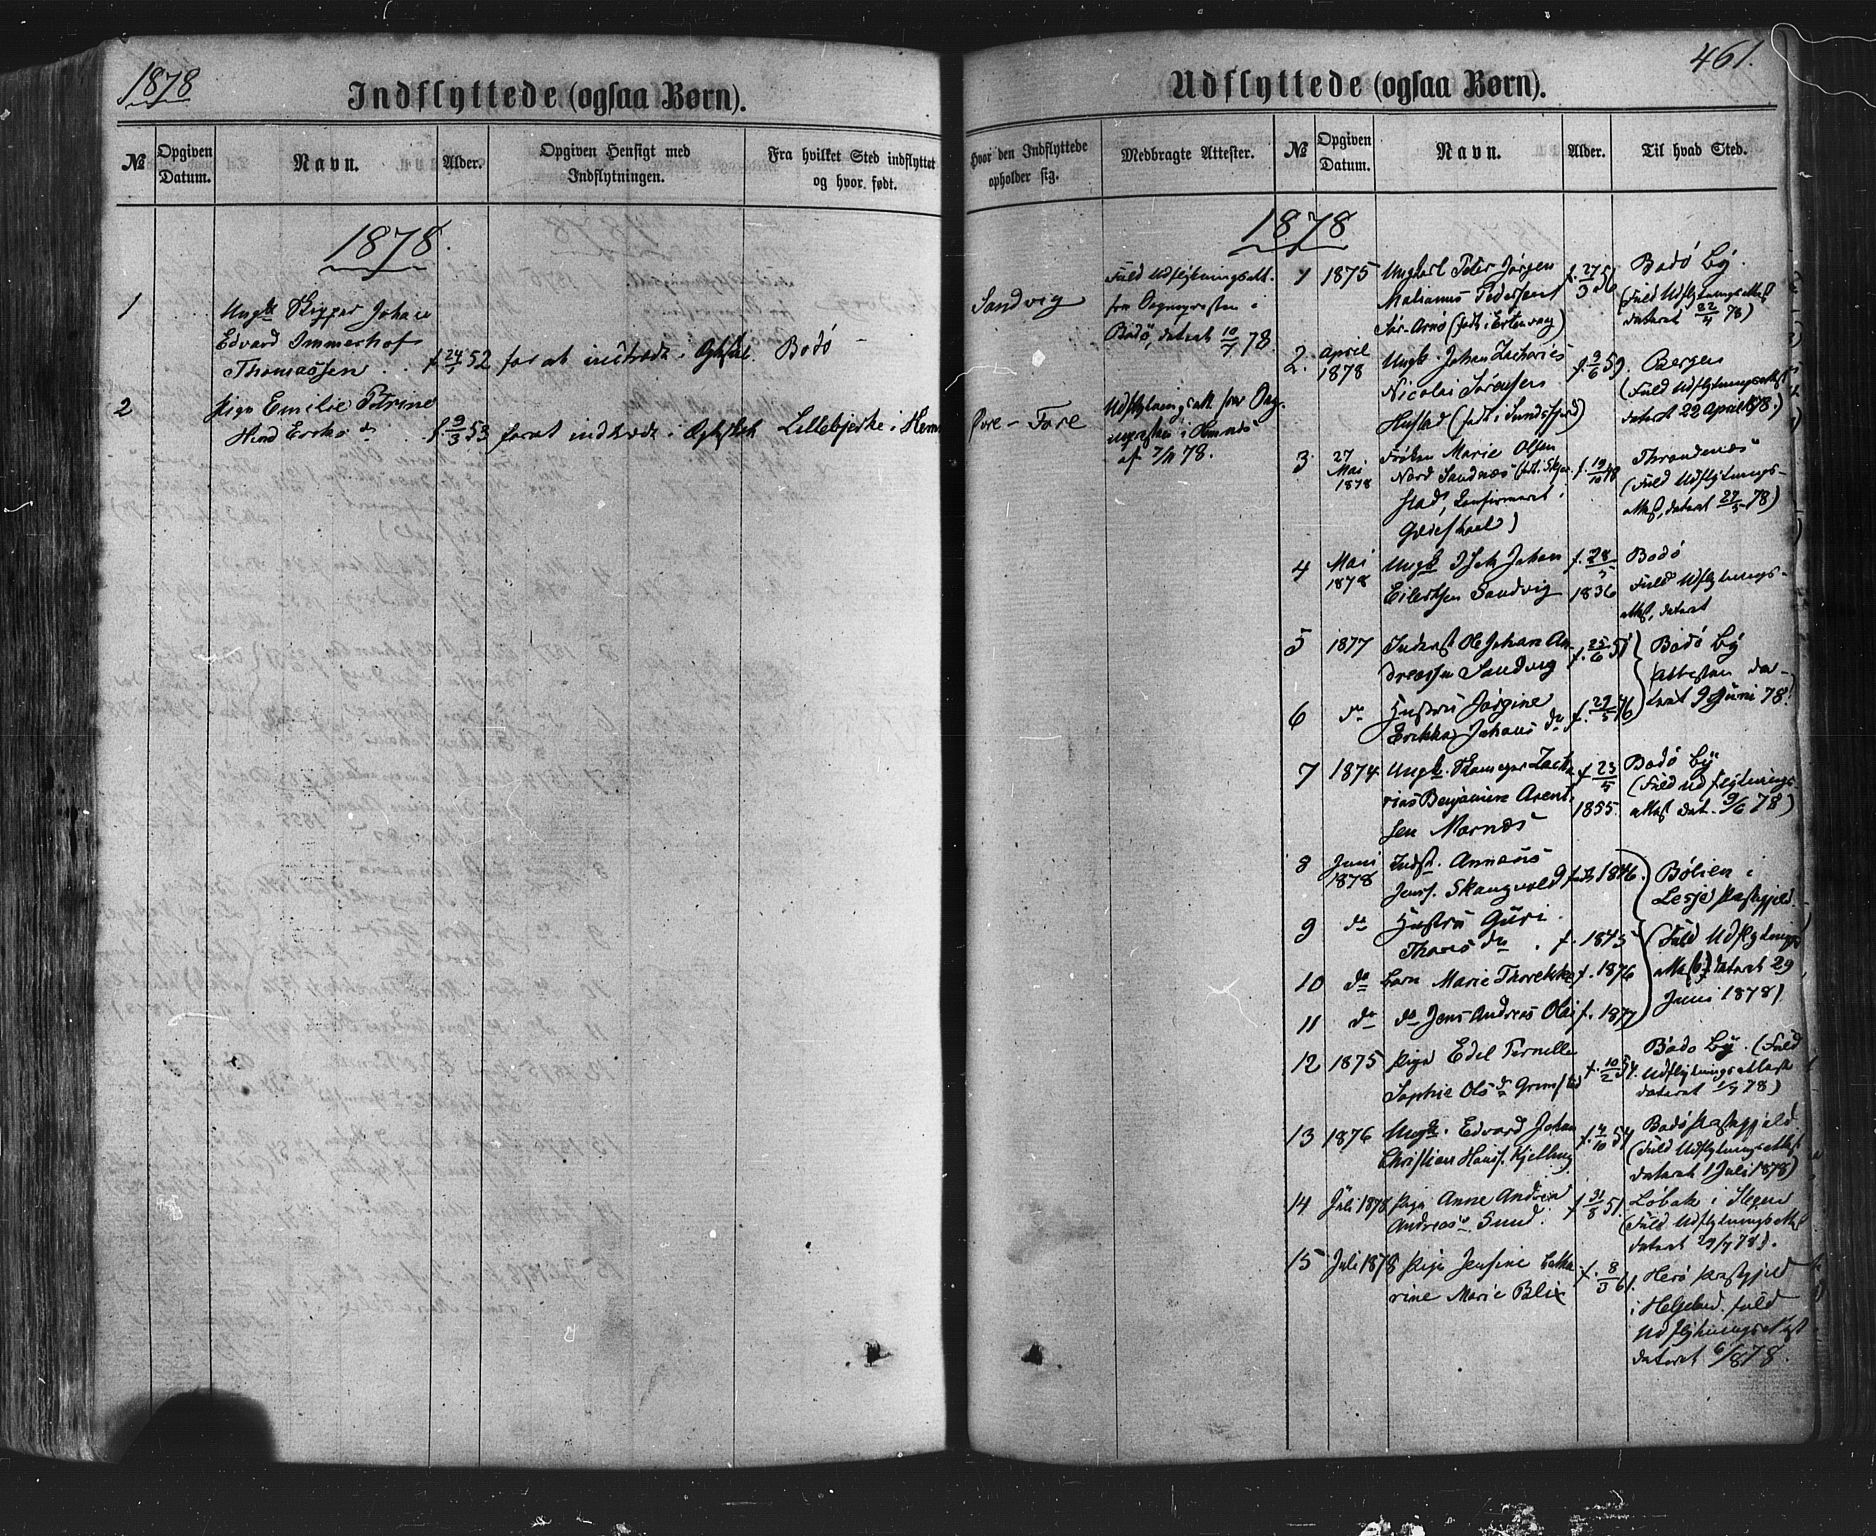 1878
Indflyttede (ogsaa Børn).
№
Opgiven Datum.
Navn.
Alder.
Opgiven Hensigt med Indflytningen.
Fra hvilket Sted indflyttet og hvor født.
Hvor den Indflyttede opholder sig.
Medbragte Attester.
1878.
1
Ungk. Skipper Johan
Edvard Immerhof
Thomassen
f. 52 for at indtræde i Ægtesk. Bodø
Sandvig
Fuld Udflytningsatt.
fra Sognepresten i
Bodø, dateret 10/7 78.
2
Pige Emilie Petrine
Hind Ericks d.
f. 9/3 53 for at indtræde i Ægtesk. Lillebjerke i Hem
Øvre-Fore
Udflytningsatt. fra Sog-
nepresten i Hemnæs
af 78.
461.
Udflyttede (ogsaa Børn).
№
Opgiven Datum.
Navn.
Alder.
Til hvad Sted.
1878
1 1875 Ungkarl Peter Jørgen
Marianus Pedersen
Sør-Arnø (født i )
f. 27/3 56
Bodø By.
(Fuld Udflytningsattest
dateret 22/4 78)
2. April 1878
Ungk. Johan Zacharies
Nicolai Sørensen
Hustad (født i Sundsfjord)
f. 9/6 59.
Bergen
(Fuld Udflytningsattest
dateret 22 April 1878.)
3 27 Mai 1878
Frøken Marie Olsen
Nord Sandnæs (født i Skjer-
stad, konfirmeret i
Gildeskaal)
f. 19/10 48
Throndenæs
(Fuld Udflytnings-
attest, dateret 27/5 78)
4 Mai 1878
Ungk. Johan
Eilertsen Sandvig
f. 28/5 1836
Bodø
Fuld Udflytnings-
attest, dateret
5 1877
Inderst Ole Johan An-
dreassen Sandvig
f. 25/6 51
Bodø By
Attesten da-
teret 9 Juni 78.
6 do
Hustru Jørgine
Erikka Johans do
f. 29/5 46
7 1874
Ungk. Zacha-
rias Benjamin Arent-
sen Marnæs
f. 23/5 1855.
Bodø By
(Fuld Udflytnings-
attest dat. 9/6 78)
8 Juni 1878
Indst. Annanis
Jens. Skaugvold
født 1846.
Bølien i
Lesje Prestegjeld.
(Fuld Udflytnings
attest dateret 29
Juni 1878)
9 do
Hustru Guri
Thores do. f. 1845
10 do Barn Marie Thorekka f. 1876
11 do do Jens Andreas Olai f. 1877
12 1875
Pige Edel Pernille
Sophie Ols d. Grimstad
f. 10/2 54.
Bodø By. (Fuld
Udflytningsattest
dateret 1/7 78)
13 1876
Ungk. Edvard Johan
Christian Hans. Kjelling
f. 4/10 54
Bodø Prestegjeld.
(Fuld Udflytningsattest
dateret 1 Juli 1878)
14 Juli 1878
Pige Anne Andrea
Andreas d. Sund.
f. 31/8 51.
Løbak i Stegen
(Fuld Udflytningsattest
dateret 29/7 78).
15 Juli 1878
Pige Jensine Catha
rine Marie Blix
f. 8/3 61.
Herø Prestegjeld
i Helgeland. Fuld
Udflytningsattest
dateret 6/8 78.